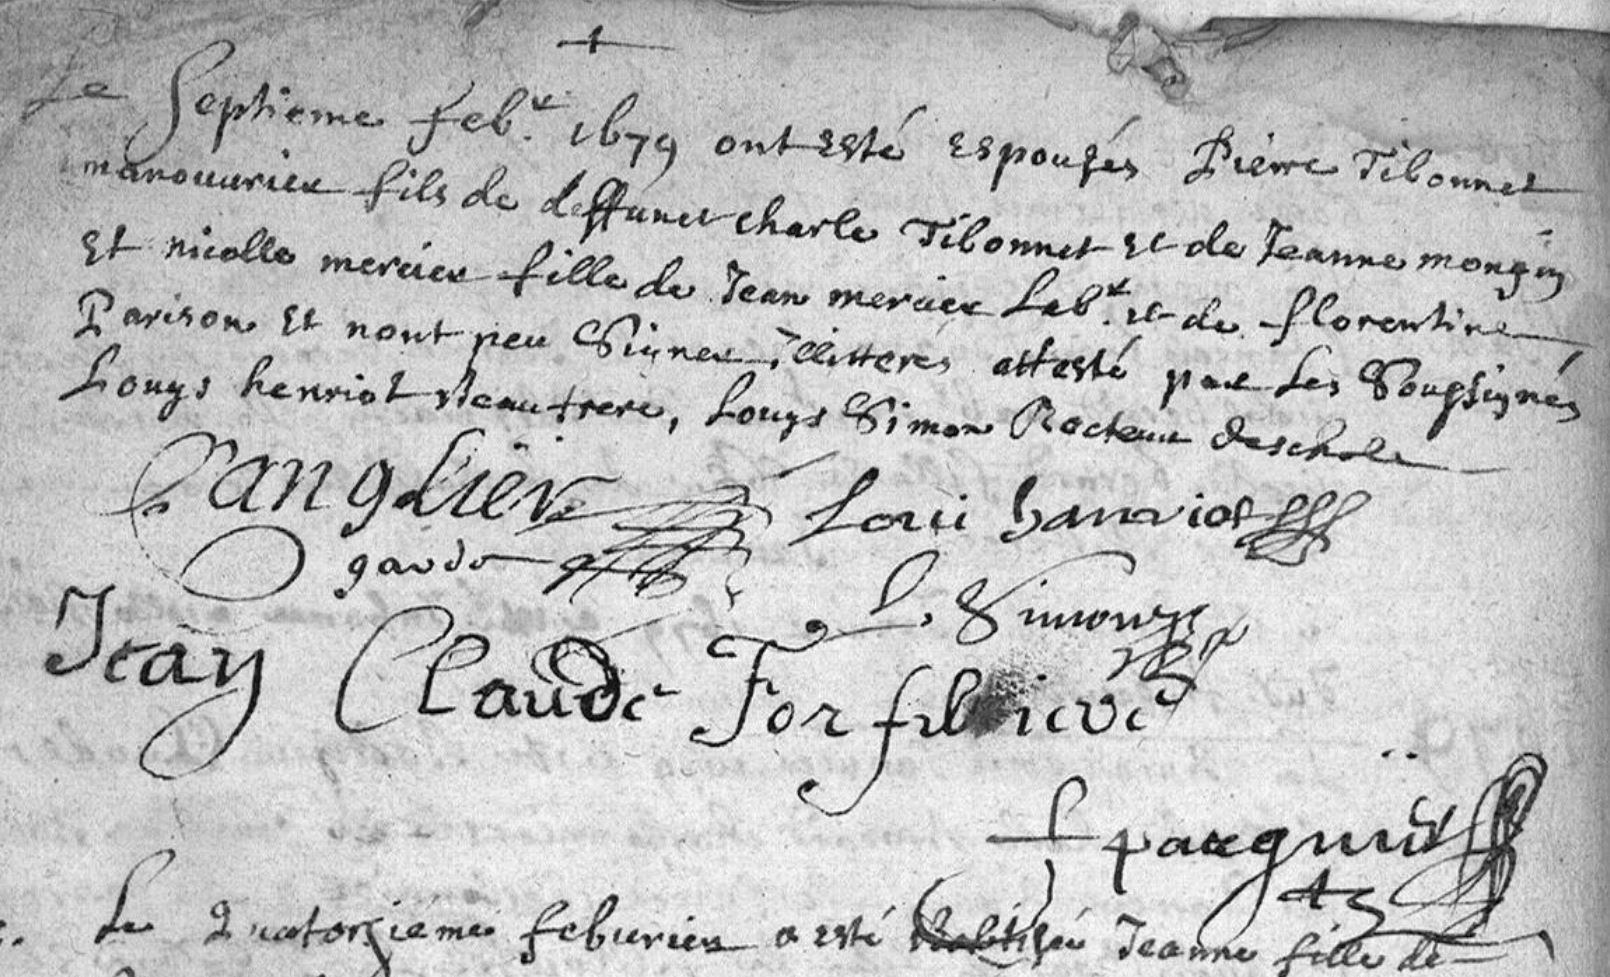 Le Septieme feb.r 1679 ont esté espousés Pierre Tibonnet
manouurier fils de deffunct charle Tibonnet et de Jeanne mongin
et nicolle mercier fille de Jean mercier Lab.r et de florentine
Parison et nont peu Signer illitterés attesté par Les Soupsignés
Louys henriot beaufrere, Louys Simon Recteur deschole
Sanglier Loui hanriot
L. Simon
Jean Claude
Le Quatorzieme feburier a esté Babtisée Jeanne fille de